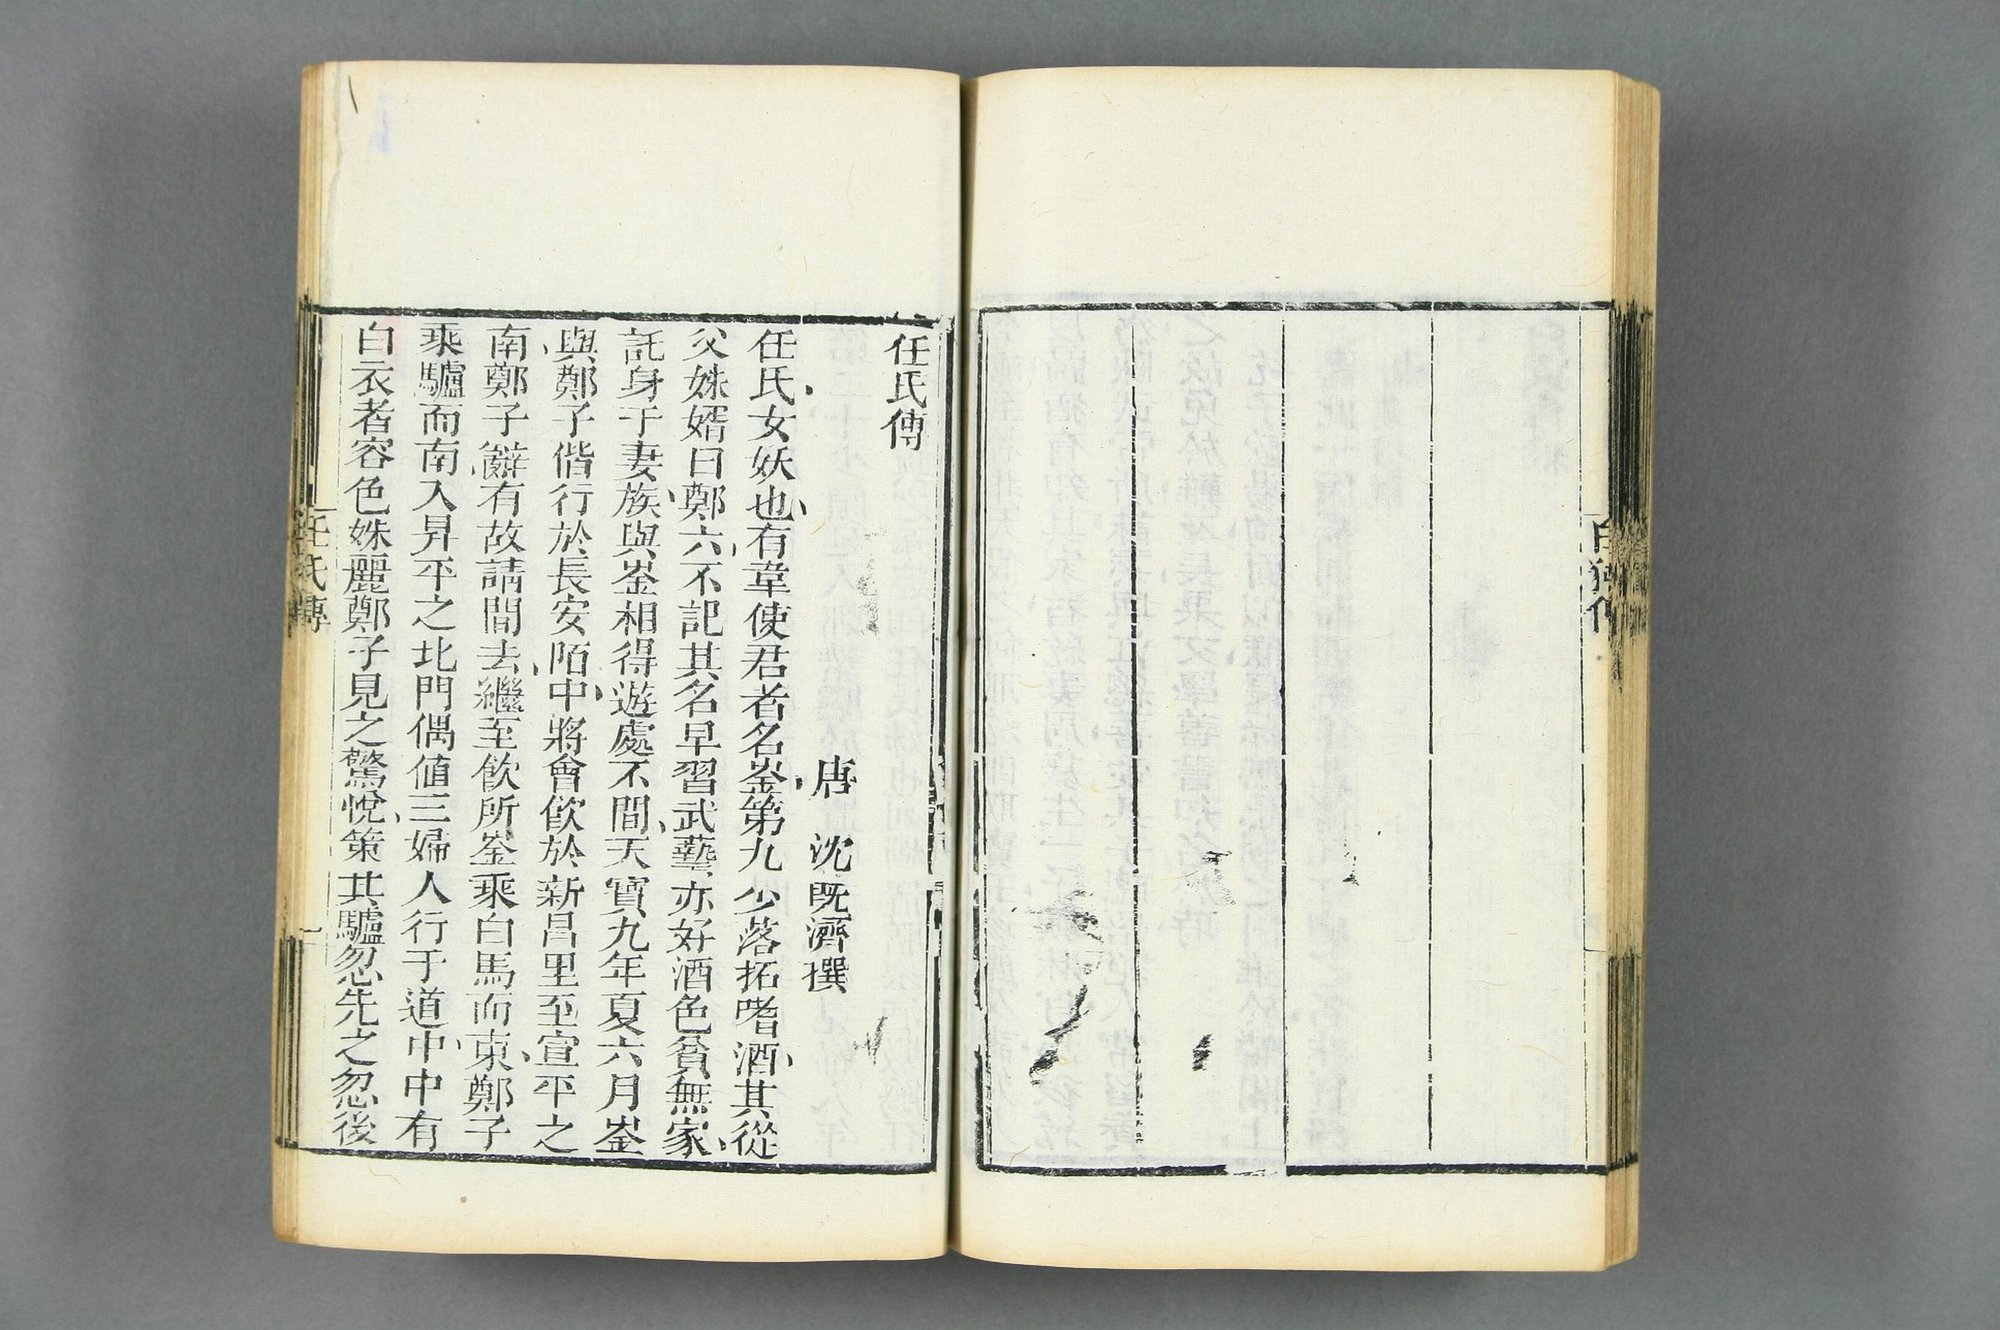 任氏傳
唐　沈既濟撰
任氏女妖也有韋使君者名崟第九少落拓嗜酒其從
父妹婿曰鄭六不記其名早習武藝亦好酒色貧無家
託身于妻族與崟相得遊處不間天寶九年夏六月崟
與鄭子偕行於長安陌中將會飲於新昌里至宣平之
南鄭子辭有故請間去繼至飲所崟乘白馬而東鄭子
乘驢而南入昇平之北門偶値三婦人行于道中中有
白衣者容色姝麗鄭子見之驚悅策其驢忽先之忽後
任氏傳
一
白猿傳